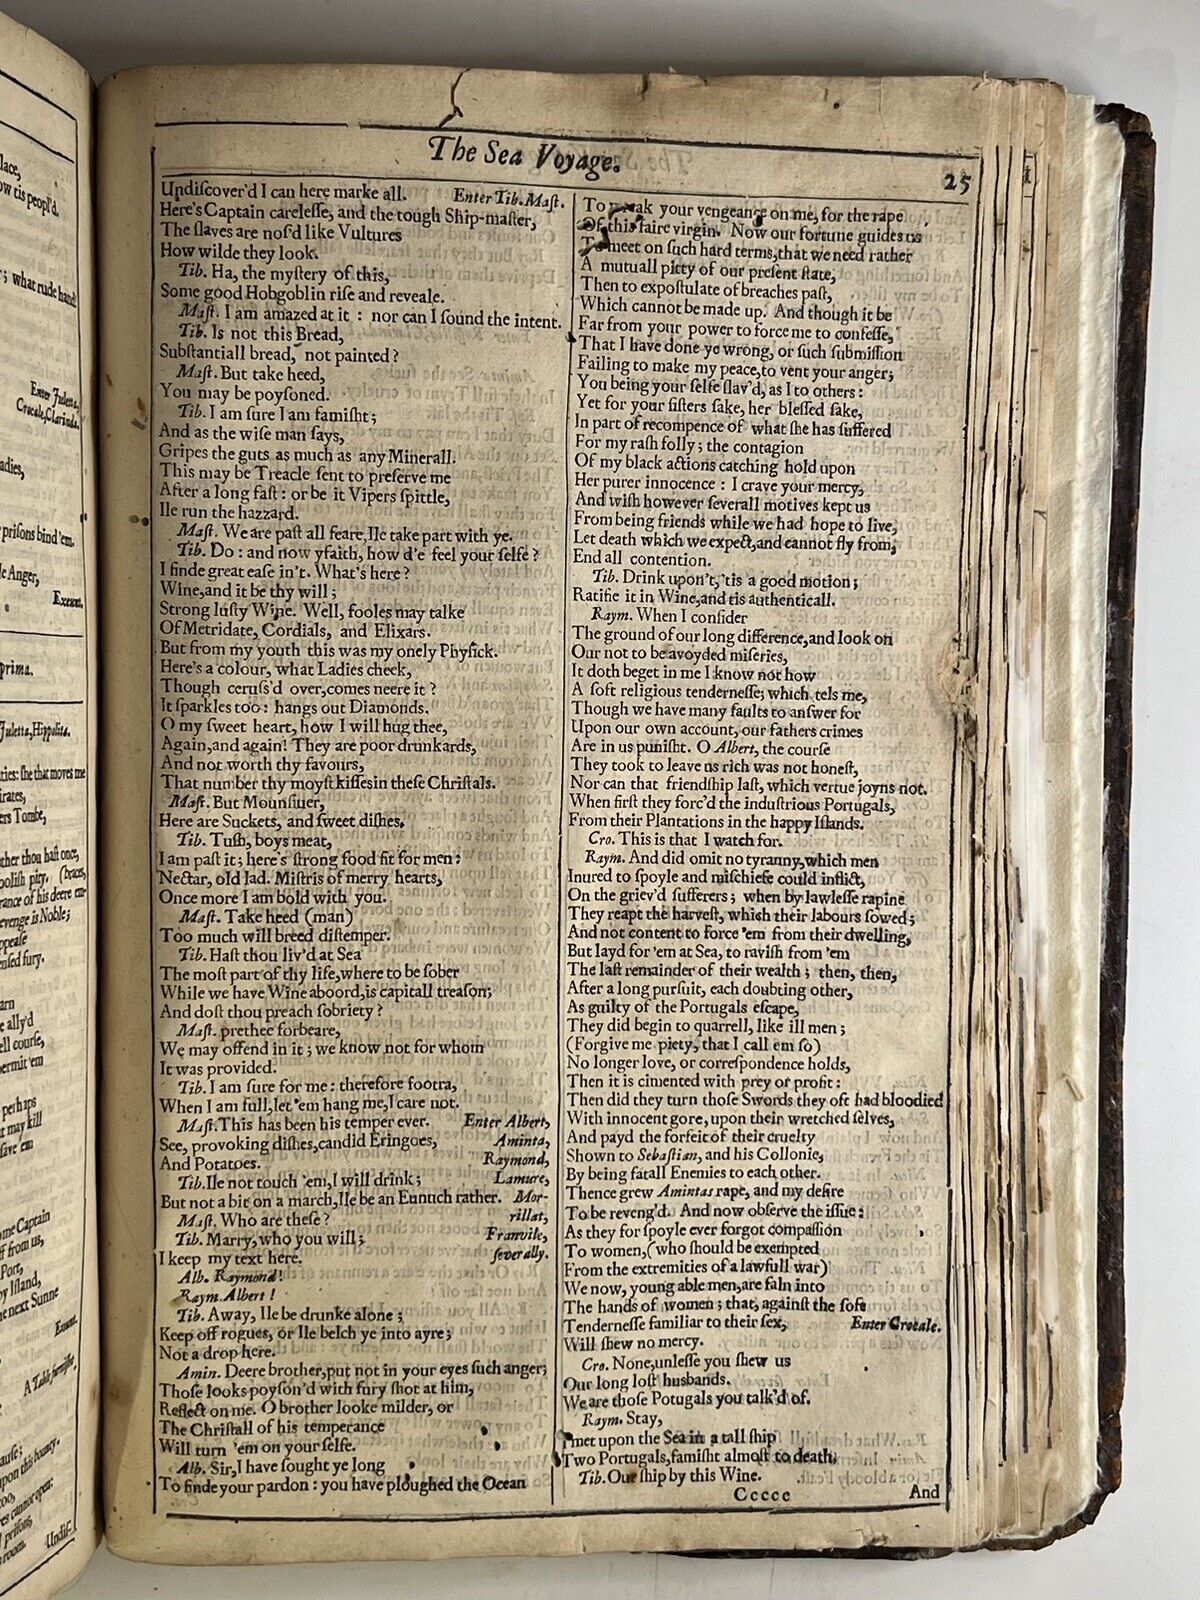 lace,
ow tis peopl'd.
; what rude hand
Enter Juletta,
Crocale, Clarinda.
adies,
prisons bind 'em.
le Anger,
Exeunt.
prima.
Juletta, Hippolita.
ties: she that moves me
irates,
ers Tombe,
ther thou hast once,
oolish pity. (braces,
rance of his deere em-
evenge is Noble;
appease
ensed fury.
arn
e ally'd
ell course,
permit 'em
perhaps
t may kill
save 'em
ome Captain
ff from us,
Port,
by Island,
he next Sunne
Exeunt.
A Table furnisht.
ause;
upon this bounty.
too,
res cannot open.
d prisons,
room.
Undis-
The Sea Voyage.
25
Undiscover'd I can here marke all. Enter Tib. Mast.
Here's Captain carelesse, and the tough Ship-master,
The slaves are nos'd like Vultures
How wilde they look.
Tib. Ha, the mystery of this,
Some good Hobgoblin rise and reveale.
Mast. I am amazed at it : nor can I sound the intent.
Tib. Is not this Bread,
Substantiall bread, not painted ?
Mast. But take heed,
You may be poysoned.
Tib. I am sure I am famisht;
And as the wise man says,
Gripes the guts as much as any Minerall.
This may be Treacle sent to preserve me
After a long fast : or be it Vipers spittle,
Ile run the hazzard.
Mast. We are past all feare, Ile take part with ye.
Tib. Do : and now yfaith, how d'e feel your selfe ?
I finde great ease in't. What's here ?
Wine, and it be thy will;
Strong lusty Wine. Well, fooles may talke
Of Metridate, Cordials, and Elixars.
But from my youth this was my onely Physick.
Here's a colour, what Ladies cheek,
Though ceruss'd over, comes neere it ?
It sparkles too : hangs out Diamonds.
O my sweet heart, how I will hug thee,
Again, and again! They are poor drunkards,
And not worth thy favours,
That number thy moyst kisses in these Christals.
Mast. But Mounsiuer,
Here are Suckets, and sweet dishes.
Tib. Tush, boys meat,
I am past it; here's strong food fit for men :
Nectar, old lad. Mistris of merry hearts,
Once more I am bold with you.
Mast. Take heed (man)
Too much will breed distemper.
Tib. Hast thou liv'd at Sea
The most part of thy life, where to be sober
While we have Wine aboord, is capitall treason;
And dost thou preach sobriety ?
Mast. prethee forbeare,
We may offend in it; we know not for whom
It was provided.
Tib. I am sure for me : therefore footra,
When I am full, let 'em hang me, I care not.
Mast. This has been his temper ever. Enter Albert,
See, provoking dishes, candid Eringoes, Aminta,
And Potatoes. Raymond,
Tib. Ile not touch 'em, I will drink; Lamure,
But not a bit on a march, Ile be an Eunuch rather. Mor-
Mast. Who are these ? rillat,
Tib. Marry, who you will; Franvile,
I keep my text here. severally.
Alb. Raymond !
Raym. Albert !
Tib. Away, Ile be drunke alone;
Keep off rogues, or Ile belch ye into ayre;
Not a drop here.
Amin. Deere brother, put not in your eyes such anger;
Those looks poyson'd with fury shot at him,
Reflect on me. O brother looke milder, or
The Christall of his temperance
Will turn 'em on your selfe.
Alb. Sir, I have sought ye long
To finde your pardon : you have ploughed the Ocean
To wreak your vengeance on me, for the rape
Of this faire virgin. Now our fortune guides us
To meet on such hard terms, that we need rather
A mutuall pitty of our present state,
Then to expostulate of breaches past,
Which cannot be made up. And though it be
Far from your power to force me to confesse,
That I have done ye wrong, or such submission
Failing to make my peace, to vent your anger;
You being your selfe slav'd, as I to others :
Yet for your sisters sake, her blessed sake,
In part of recompence of what she has suffered
For my rash folly; the contagion
Of my black actions catching hold upon
Her purer innocence : I crave your mercy,
And wish however severall motives kept us
From being friends while we had hope to live,
Let death which we expect, and cannot fly from,
End all contention.
Tib. Drink upon't, 'tis a good motion;
Ratifie it in Wine, and tis authenticall.
Raym. When I consider
The ground of our long difference, and look on
Our not to be avoyded miseries,
It doth beget in me I know not how
A soft religious tendernesse; which tels me,
Though we have many faults to answer for
Upon our own account, our fathers crimes
Are in us punisht. O Albert, the course
They took to leave us rich was not honest,
Nor can that friendship last, which vertue joyns not.
When first they forc'd the industrious Portugals,
From their Plantations in the happy Islands.
Cro. This is that I watch for.
Raym. And did omit no tyranny, which men
Inured to spoyle and mischiefe could inflict,
On the griev'd sufferers; when by lawlesse rapine
They reapt the harvest, which their labours sowed;
And not content to force 'em from their dwelling,
But layd for 'em at Sea, to ravish from 'em
The last remainder of their wealth; then, then,
After a long pursuit, each doubting other,
As guilty of the Portugals escape,
They did begin to quarrell, like ill men;
(Forgive me piety, that I call em so)
No longer love, or correspondence holds,
Then it is cimented with prey or profit:
Then did they turn those Swords they oft had bloodied
With innocent gore, upon their wretched selves,
And payd the forfeit of their cruelty
Shown to Sebastian, and his Collonie,
By being fatall Enemies to each other.
Thence grew Amintas rape, and my desire
To be reveng'd. And now observe the issue :
As they for spoyle ever forgot compassion
To women, (who should be exempted
From the extremities of a lawfull war)
We now, young able men, are faln into
The hands of women; that, against the soft
Tendernesse familiar to their sex, Enter Crocale.
Will shew no mercy.
Cro. None, unlesse you shew us
Our long lost husbands.
We are those Potugals you talk'd of.
Raym. Stay,
I met upon the Sea in a tall ship
Two Portugals, famisht almost to death;
Tib. Our ship by this Wine.
Ccccc And